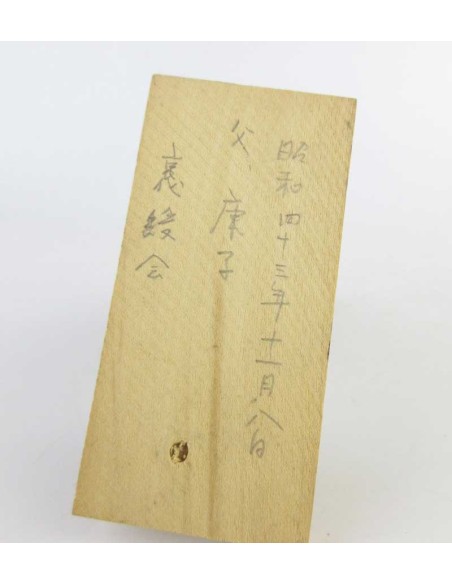 昭和四十三年十一月八日
父、康子
裏綬会